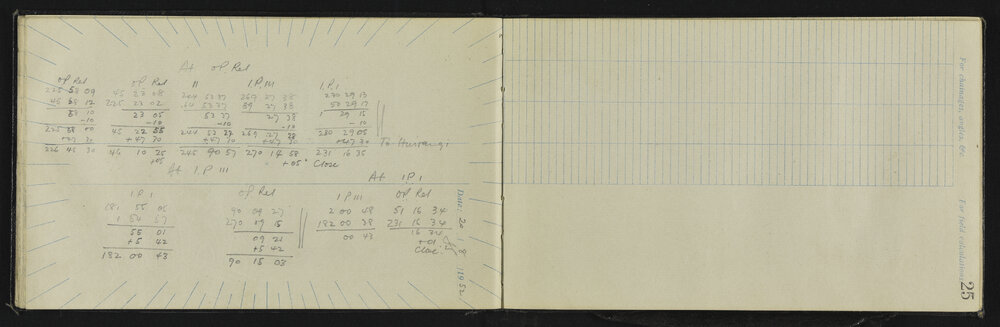 At OP Rel
OP Rel OP Rel II I.P. III I.P. I
225 58 09 45 23 08 269 27 38 230 29 13
45 58 12 225 23 02 64 53 37 89 27 38 50 29 17
58 10 23 05 53 37 27 38 1 29 15
-10 -10 -10 -10 -10
225 58 00 45 22 55 244 53 27 269 27 28 230 29 05
+47 30 +47 30 +47 10 +47 30 +47 30
226 45 30 46 10 25 245 40 57 270 14 58 231 16 35
+05 +05" Close
At I.P III
At I.P I
I.P I OP Rel I P III OP Rel
181 55 05 90 09 27 2 00 48 51 16 34
1 54 57 270 09 15 182 00 38 231 16 34
55 01 09 21 00 43 16 34
+5 42 +5 42 +01
182 00 43 90 15 03 Close
Date: 20 / 8 / 1952
For chainages, angles, &c.
For field calculations
25